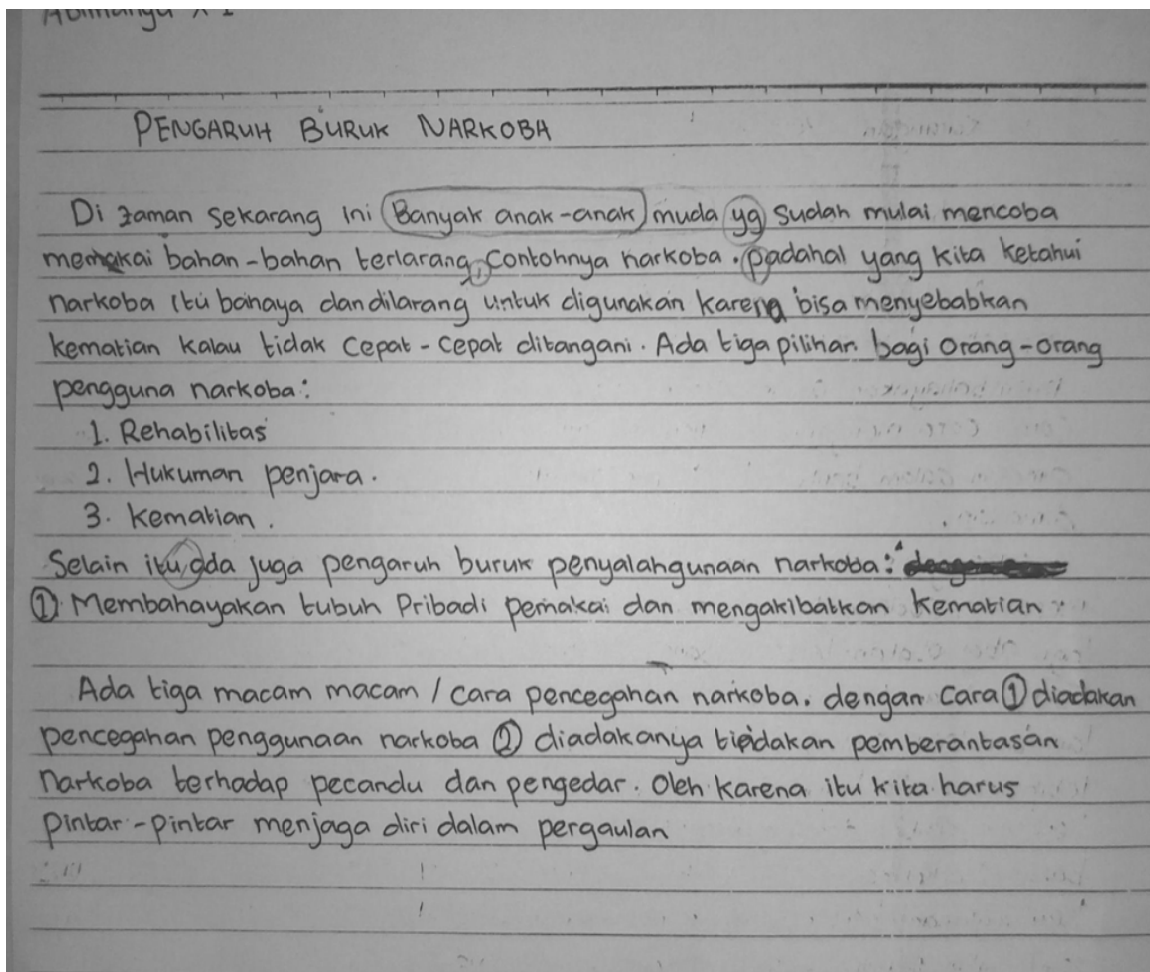 PENGARUH BURUK NARKOBA
Di zaman sekarang ini Banyak anak-anak muda yg sudah mulai mencoba
memakai bahan-bahan terlarang, Contohnya narkoba. padahal yang kita ketahui
narkoba itu bahaya dan dilarang untuk digunakan karena bisa menyebabkan
kematian kalau tidak cepat-cepat ditangani. Ada tiga pilihan bagi orang-orang
pengguna narkoba:
1. Rehabilitas
2. Hukuman penjara.
3. Kematian.
Selain itu, ada juga pengaruh buruk penyalahgunaan narkoba:
① Membahayakan tubuh Pribadi pemakai dan mengakibatkan kematian
Ada tiga macam macam / cara pencegahan narkoba. dengan cara ① diadakan
pencegahan penggunaan narkoba ② diadakanya tindakan pemberantasan
narkoba terhadap pecandu dan pengedar. Oleh karena itu kita harus
pintar-pintar menjaga diri dalam pergaulan